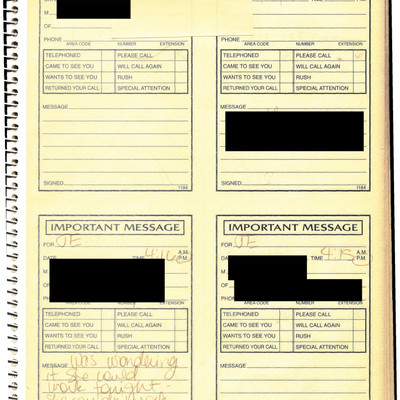 M
OF
PHONE
AREA CODE NUMBER EXTENSION
TELEPHONED PLEASE CALL
CAME TO SEE YOU WILL CALL AGAIN
WANTS TO SEE YOU RUSH
RETURNED YOUR CALL SPECIAL ATTENTION
MESSAGE
SIGNED
1184
PHONE
AREA CODE NUMBER EXTENSION
TELEPHONED PLEASE CALL
CAME TO SEE YOU WILL CALL AGAIN
WANTS TO SEE YOU RUSH
RETURNED YOUR CALL SPECIAL ATTENTION
MESSAGE
SIGNED
1184
IMPORTANT MESSAGE
FOR JE
A.M.
DATE TIME 4:16 P.M.
M
OF
PH
EXTENSION
TELEPHONED PLEASE CALL
CAME TO SEE YOU WILL CALL AGAIN
WANTS TO SEE YOU RUSH
RETURNED YOUR CALL SPECIAL ATTENTION
MESSAGE was wondering
if she could
work tonight -
IMPORTANT MESSAGE
FOR JE
A.M.
DATE TIME 4:15 P.M.
M
OF
PHO
AREA CODE NUMBER EXTENSION
TELEPHONED PLEASE CALL
CAME TO SEE YOU WILL CALL AGAIN
WANTS TO SEE YOU RUSH
RETURNED YOUR CALL SPECIAL ATTENTION
MESSAGE